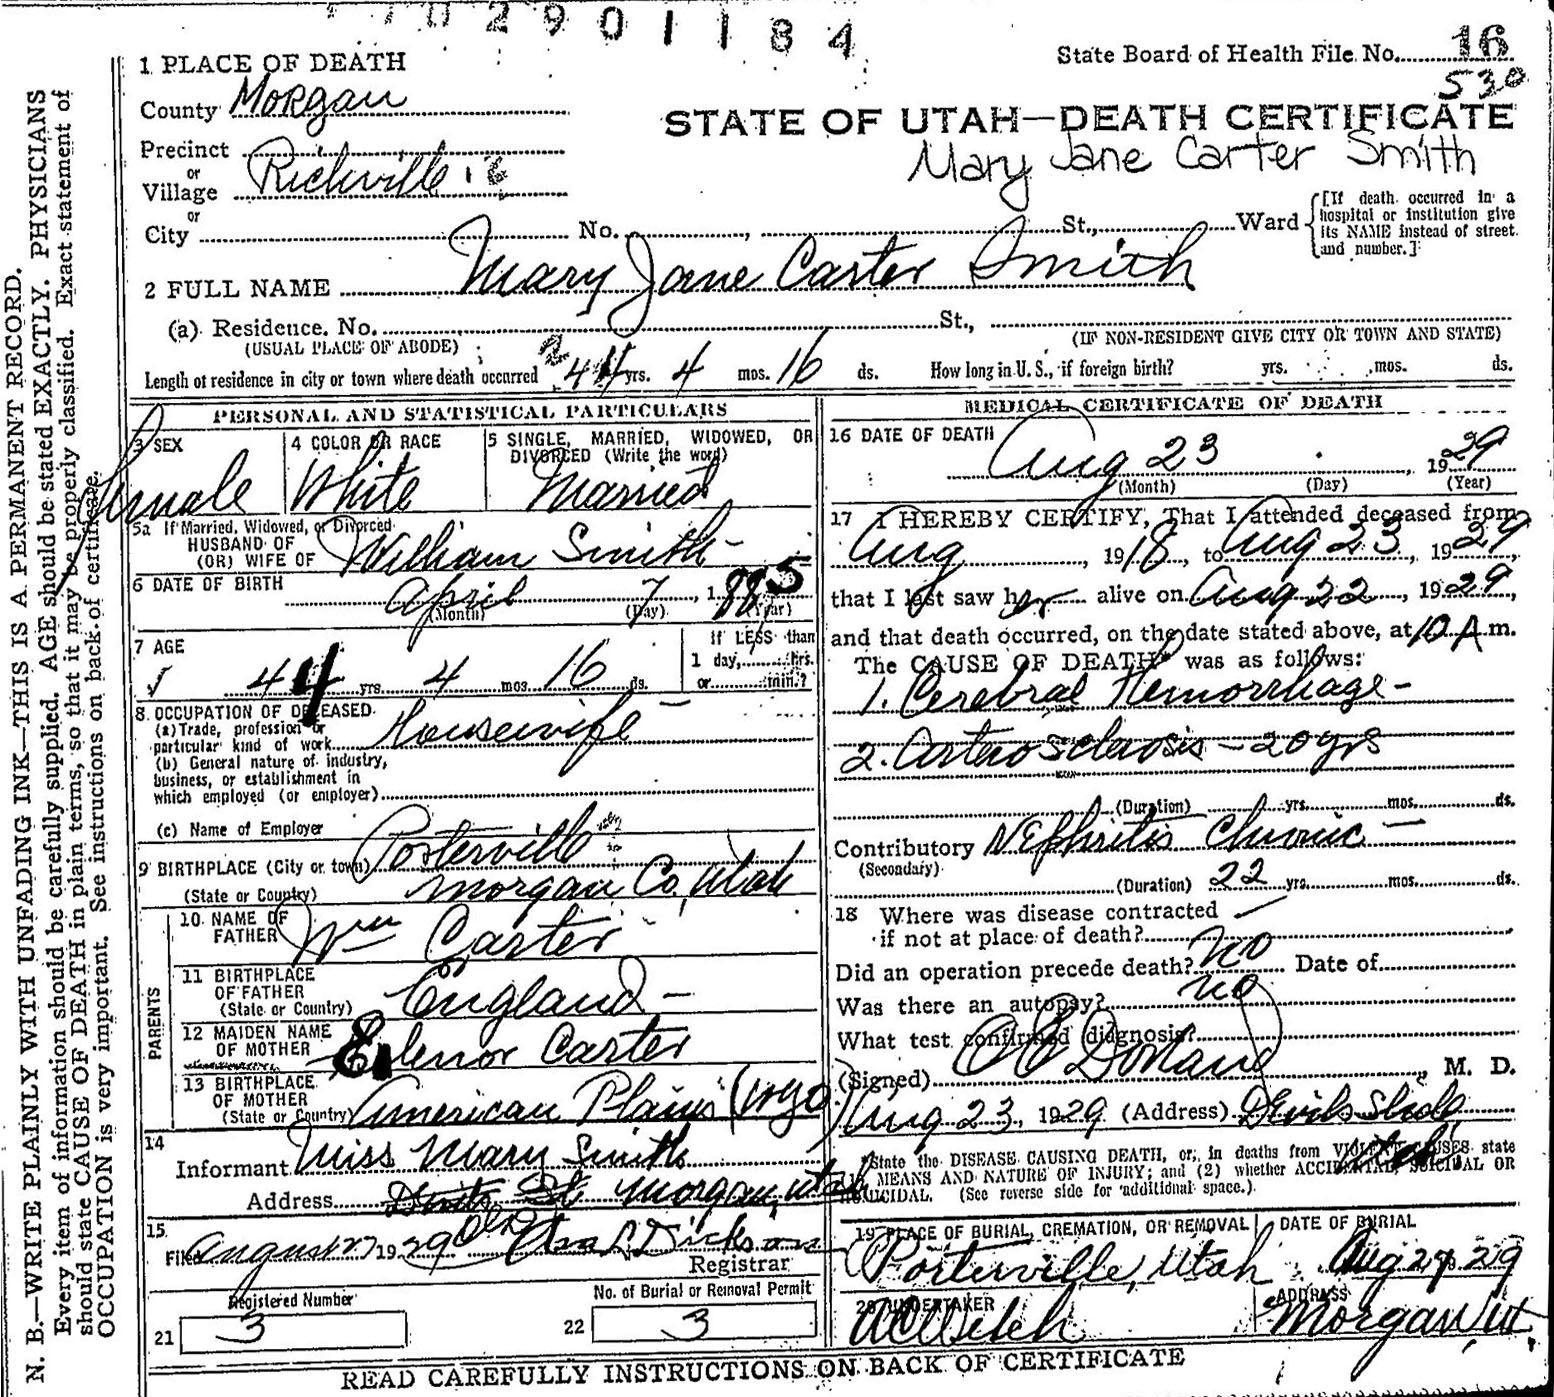 1702901184
State Board of Health File No. 16
530
1 PLACE OF DEATH
County Morgan
STATE OF UTAH—DEATH CERTIFICATE
Mary Jane Carter Smith
Precinct
or
Village Richville
or
City No. , St., Ward
[If death occurred in a hospital or institution give its NAME instead of street and number.]
2 FULL NAME Mary Jane Carter Smith
(a) Residence. No. St.,
(USUAL PLACE OF ABODE) (IF NON-RESIDENT GIVE CITY OR TOWN AND STATE)
Length of residence in city or town where death occurred 44 yrs. 4 mos. 16 ds. How long in U. S., if foreign birth? yrs. mos. ds.
PERSONAL AND STATISTICAL PARTICULARS
3 SEX
Female
4 COLOR OR RACE
White
5 SINGLE, MARRIED, WIDOWED, OR DIVORCED (Write the word)
Married
5a If Married, Widowed, or Divorced
HUSBAND OF
(OR) WIFE OF William Smith
6 DATE OF BIRTH April 7, 1885
(Month) (Day) (Year)
7 AGE
44 yrs. 4 mos. 16 ds.
If LESS than
1 day, hrs.
or min.?
8. OCCUPATION OF DECEASED
(a) Trade, profession or
particular kind of work Housewife
(b) General nature of industry,
business, or establishment in
which employed (or employer)
(c) Name of Employer
9 BIRTHPLACE (City or town) Porterville
(State or Country) Morgan Co, Utah
PARENTS
10 NAME OF
FATHER Wm Carter
11 BIRTHPLACE
OF FATHER
(State or Country) England
12 MAIDEN NAME
OF MOTHER Elenor Carter
13 BIRTHPLACE
OF MOTHER
(State or Country) American Plains (Wyo)
14
Informant Miss Mary Smith
Address Morgan, Utah
15
Filed August 27 1929 Dickson
Registrar
Registered Number
21 3
No. of Burial or Removal Permit
22 3
MEDICAL CERTIFICATE OF DEATH
16 DATE OF DEATH
Aug 23 , 1929
(Month) (Day) (Year)
17 I HEREBY CERTIFY, That I attended deceased from
Aug , 1918, to Aug 23, 1929,
that I last saw her alive on Aug 22, 1929,
and that death occurred, on the date stated above, at 10 A.m.
The CAUSE OF DEATH* was as follows:
1. Cerebral Hemorrhage -
2. Arterio Sclerosis - 20 yrs
(Duration) yrs. mos. ds.
Contributory Nephritis Chronic -
(Secondary)
(Duration) 22 yrs. mos. ds.
18 Where was disease contracted
if not at place of death?
Did an operation precede death? no Date of
Was there an autopsy? no
What test confirmed diagnosis?
(Signed) , M. D.
Aug 23, 1929 (Address) Devils Slide
Utah
*State the DISEASE CAUSING DEATH, or, in deaths from VIOLENT CAUSES state
MEANS AND NATURE OF INJURY; and (2) whether ACCIDENTAL, SUICIDAL OR
HOMICIDAL. (See reverse side for additional space.)
19 PLACE OF BURIAL, CREMATION, OR REMOVAL
Porterville, Utah
DATE OF BURIAL
Aug 27 29
20 UNDERTAKER
ADDRESS
Morgan, Ut.
READ CAREFULLY INSTRUCTIONS ON BACK OF CERTIFICATE
N. B.—WRITE PLAINLY WITH UNFADING INK—THIS IS A PERMANENT RECORD.
Every item of information should be carefully supplied. AGE should be stated EXACTLY. PHYSICIANS
should state CAUSE OF DEATH in plain terms, so that it may be properly classified. Exact statement of
OCCUPATION is very important. See instructions on back of certificate.